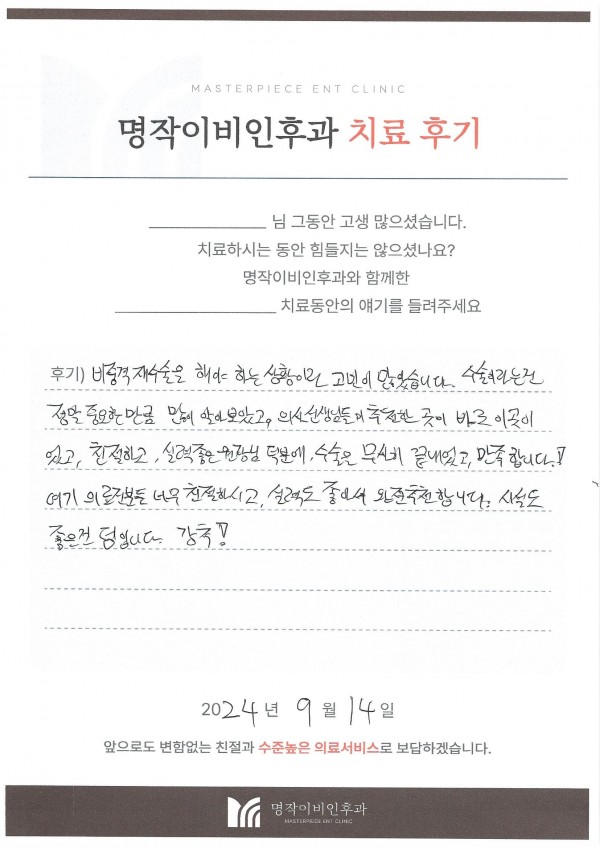 MASTERPIECE ENT CLINIC
명작이비인후과 치료 후기
님 그동안 고생 많으셨습니다.
치료하시는 동안 힘들지는 않으셨나요?
명작이비인후과와 함께한
치료동안의 얘기를 들려주세요
후기) 비중격재수술을 해야 하는 상황이라 고민이 많았습니다. 수술이라는건
정말 중요한만큼 많이 알아보았고, 의사선생님들이 추천한 곳이 바로 이곳이
었고, 친절하고, 실력좋은 원장님 덕분에, 수술은 무사히 끝내었고, 만족합니다.!
여기 의료진분들 너무 친절하시고, 실력도 좋아서 완전추천합니다. 시설도
좋은건 덤입니다. 강추!
2024년 9월 14일
앞으로도 변함없는 친절과 수준높은 의료서비스로 보답하겠습니다.
명작이비인후과
MASTERPIECE ENT CLINIC